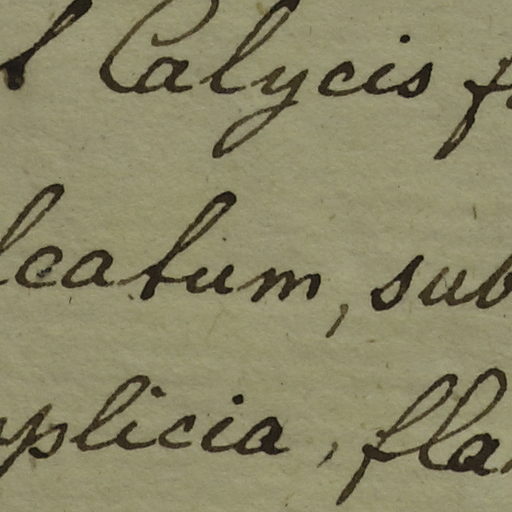 Calycis
lcatum, sub
plicia, fla